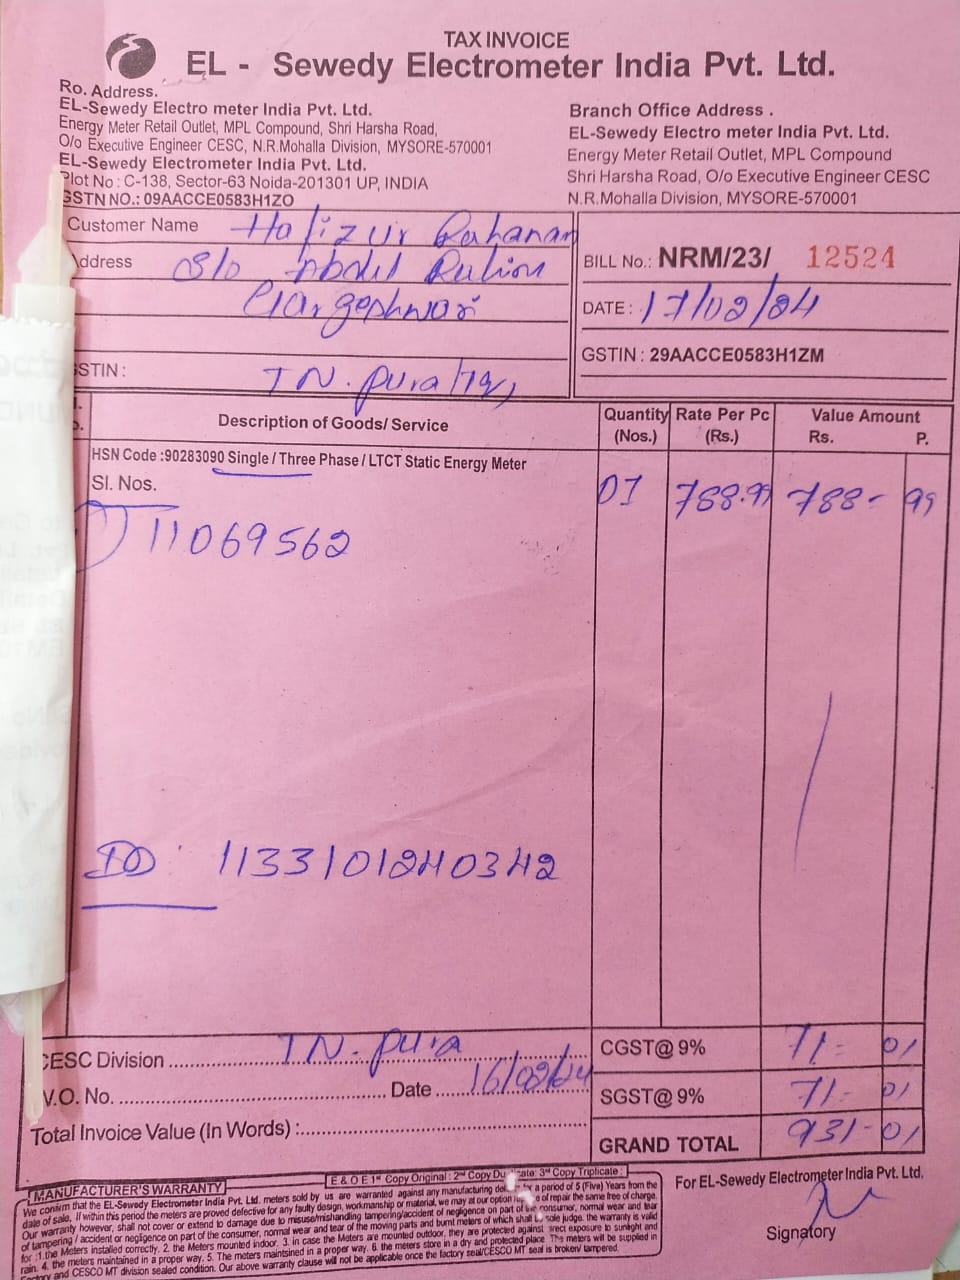 TAX INVOICE
EL - Sewedy Electrometer India Pvt. Ltd.
Ro. Address.
EL-Sewedy Electro meter India Pvt. Ltd.
Energy Meter Retail Outlet, MPL Compound, Shri Harsha Road,
O/o Executive Engineer CESC, N.R.Mohalla Division, MYSORE-570001
EL-Sewedy Electrometer India Pvt. Ltd.
Plot No : C-138, Sector-63 Noida-201301 UP, INDIA
GSTN NO.: 09AACCE0583H1ZO
Branch Office Address .
EL-Sewedy Electro meter India Pvt. Ltd.
Energy Meter Retail Outlet, MPL Compound
Shri Harsha Road, O/o Executive Engineer CESC
N.R.Mohalla Division, MYSORE-570001
Customer Name Hafizur Rahaman
Address S/o Abdul Rahim
Gargeshwari
GSTIN : TN. pura
BILL No.: NRM/23/ 12524
DATE : 17/02/24
GSTIN : 29AACCE0583H1ZM
Description of Goods/ Service Quantity (Nos.) Rate Per Pc (Rs.) Value Amount Rs. P.
HSN Code :90283090 Single / Three Phase / LTCT Static Energy Meter
Sl. Nos. 01 788.99 788- 99
1) 11069562
ID: 1133101240342
CESC Division TN. pura CGST@ 9% 71- 01
V.O. No. Date 16/02/24 SGST@ 9% 71- 01
Total Invoice Value (In Words) : GRAND TOTAL 931-01
E & O E 1st Copy Original : 2nd Copy Duplicate: 3rd Copy Triplicate :
MANUFACTURER'S WARRANTY
We confirm that the EL-Sewedy Electrometer India Pvt. Ltd. meters sold by us are warranted against any manufacturing for a period of 5 (Five) Years from the
date of sale, If within this period the meters are proved defective for any faulty design, workmanship or material, we may at our option of repair the same free of charge.
Our warranty however, shall not cover or extend to damage due to misuse/mishandling tampering/accident of negligence on part of the consumer, normal wear and tear
of tampering / accident or negligence on part of the consumer, normal wear and tear of the moving parts and burnt meters of which shall sole judge. the warranty is valid
for :1.the Meters installed correctly. 2. the Meters mounted indoor. 3. in case the Meters are mounted outdoor, they are protected against direct exposure to sunlight and
rain. 4. the meters maintained in a proper way. 5. The meters maintsined in a proper way. 6. the meters store in a dry and protected place The meters will be supplied in
Factory and CESCO MT division sealed condition. Our above warranty clause will not be applicable once the factory seal/CESCO MT seal is broken/ tampered.
For EL-Sewedy Electrometer India Pvt. Ltd.
Signatory